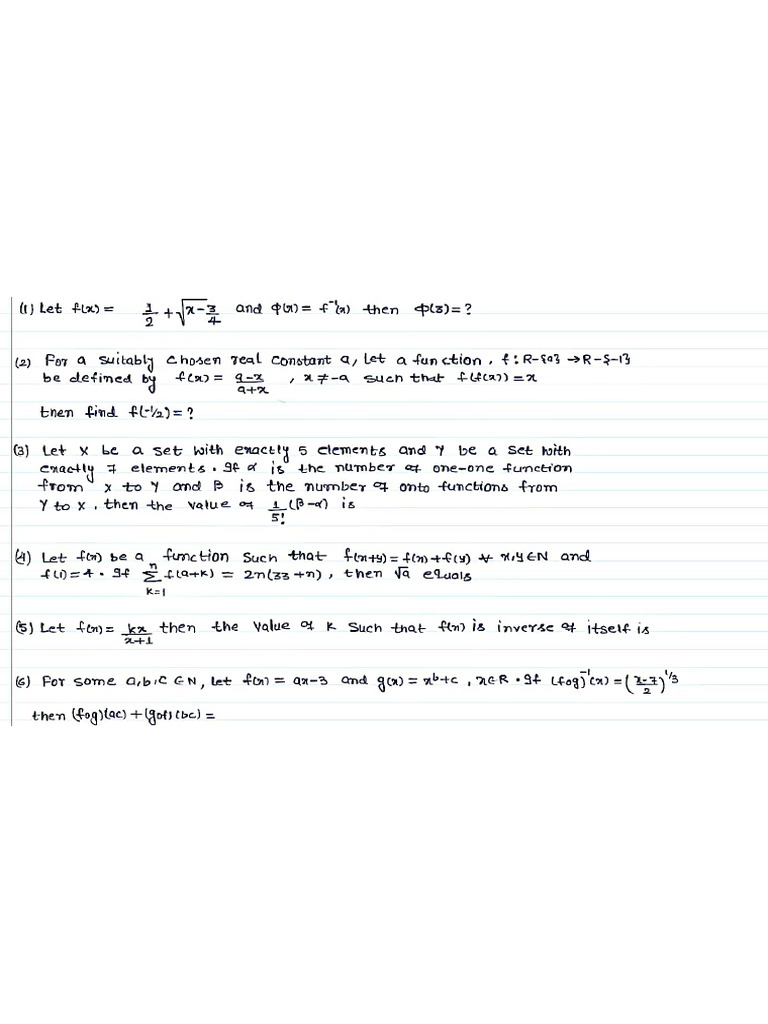 (1) Let f(x) = 1/2 + √(x-3/4) and φ(x) = f⁻¹(x) then φ(3) = ?
(2) For a suitably chosen real constant a, let a function, f : R-{a} → R-{-1}
be defined by f(x) = (a-x)/(a+x) , x ≠ -a such that f(f(x)) = x
then find f(-1/2) = ?
(3) Let X be a set with exactly 5 elements and Y be a set with
exactly 7 elements. If α is the number of one-one function
from X to Y and β is the number of onto functions from
Y to X, then the value of 1/5! (β-α) is
(4) Let f(x) be a function such that f(x+y) = f(x)+f(y) ∀ x,y∈N and
f(1) = 4. If ∑_{k=1}^{n} f(a+k) = 2n(33+n), then √a equals
(5) Let f(x) = kx/(x+1) then the value of k such that f(x) is inverse of itself is
(6) For some a,b,c ∈ N, let f(x) = ax-3 and g(x) = x^b+c , x∈R. If (fog)⁻¹(x) = ((x-7)/2)^(1/3)
then (fog)(ac) + (gof)(bc) =